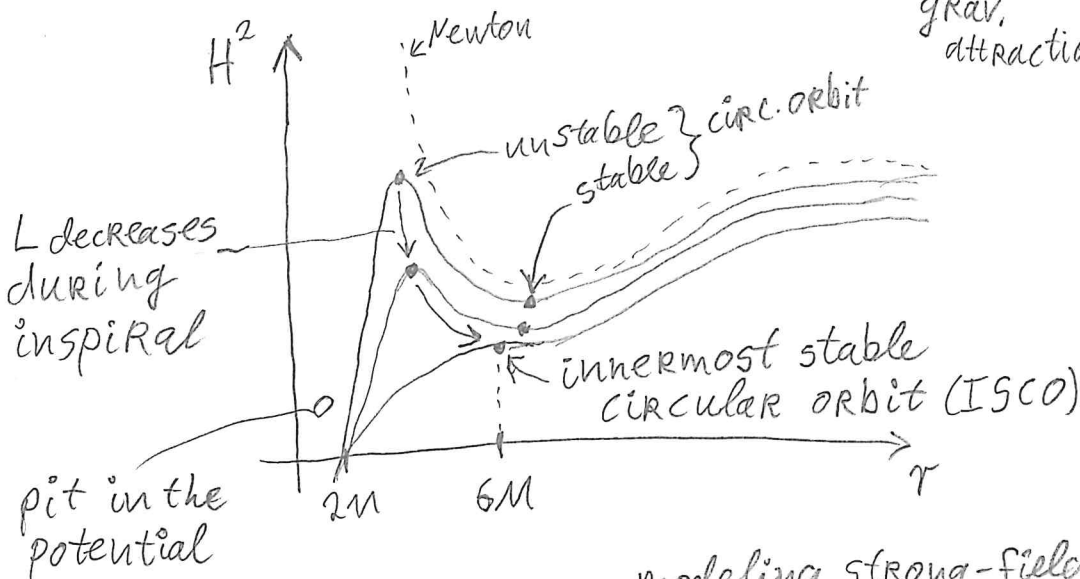 grav.
attractio
H²
Newton
unstable } circ. orbit
stable
L decreases
during
inspiral
innermost stable
circular orbit (ISCO)
r
pit in the
potential
2M
6M
modeling strong-field